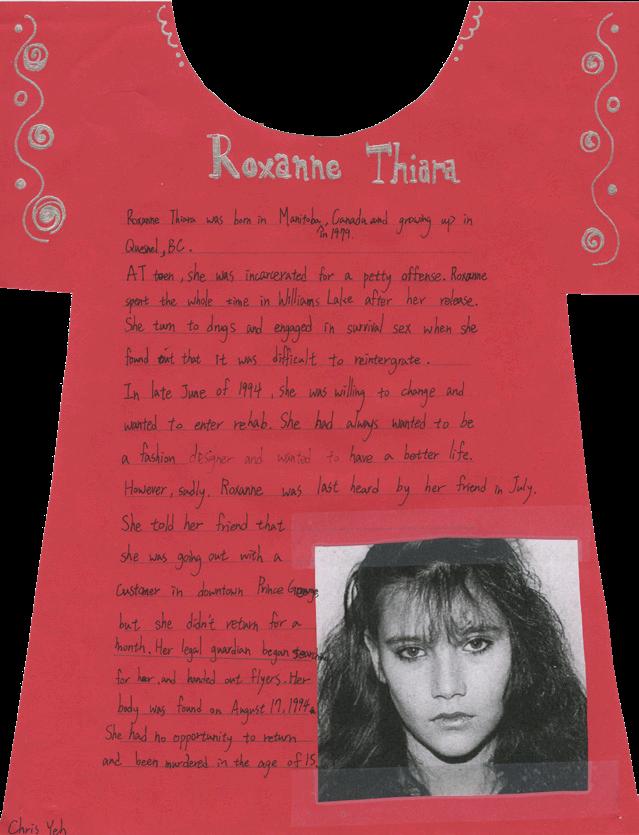 Roxanne Thiara
Roxanne Thiara was born in Manitoba, Canada and growing up in
in 1979.
Quesnel, BC.
AT teen, she was incarcerated for a petty offense. Roxanne
spent the whole time in Williams Lake after her release.
She turn to drugs and engaged in survival sex when she
found out that it was difficult to reintergrate.
In late June of 1994, she was willing to change and
wanted to enter rehab. She had always wanted to be
a fashion designer and wanted to have a better life.
However, sadly. Roxanne was last heard by her friend in July.
She told her friend that
she was going out with a
Customer in downtown Prince George,
but she didn't return for a
month. Her legal guardian began
for her, and handed out flyers. Her
body was found on August 17, 1994.
She had no opportunity to return
and been murdered in the age of 15.
Chris Yeh